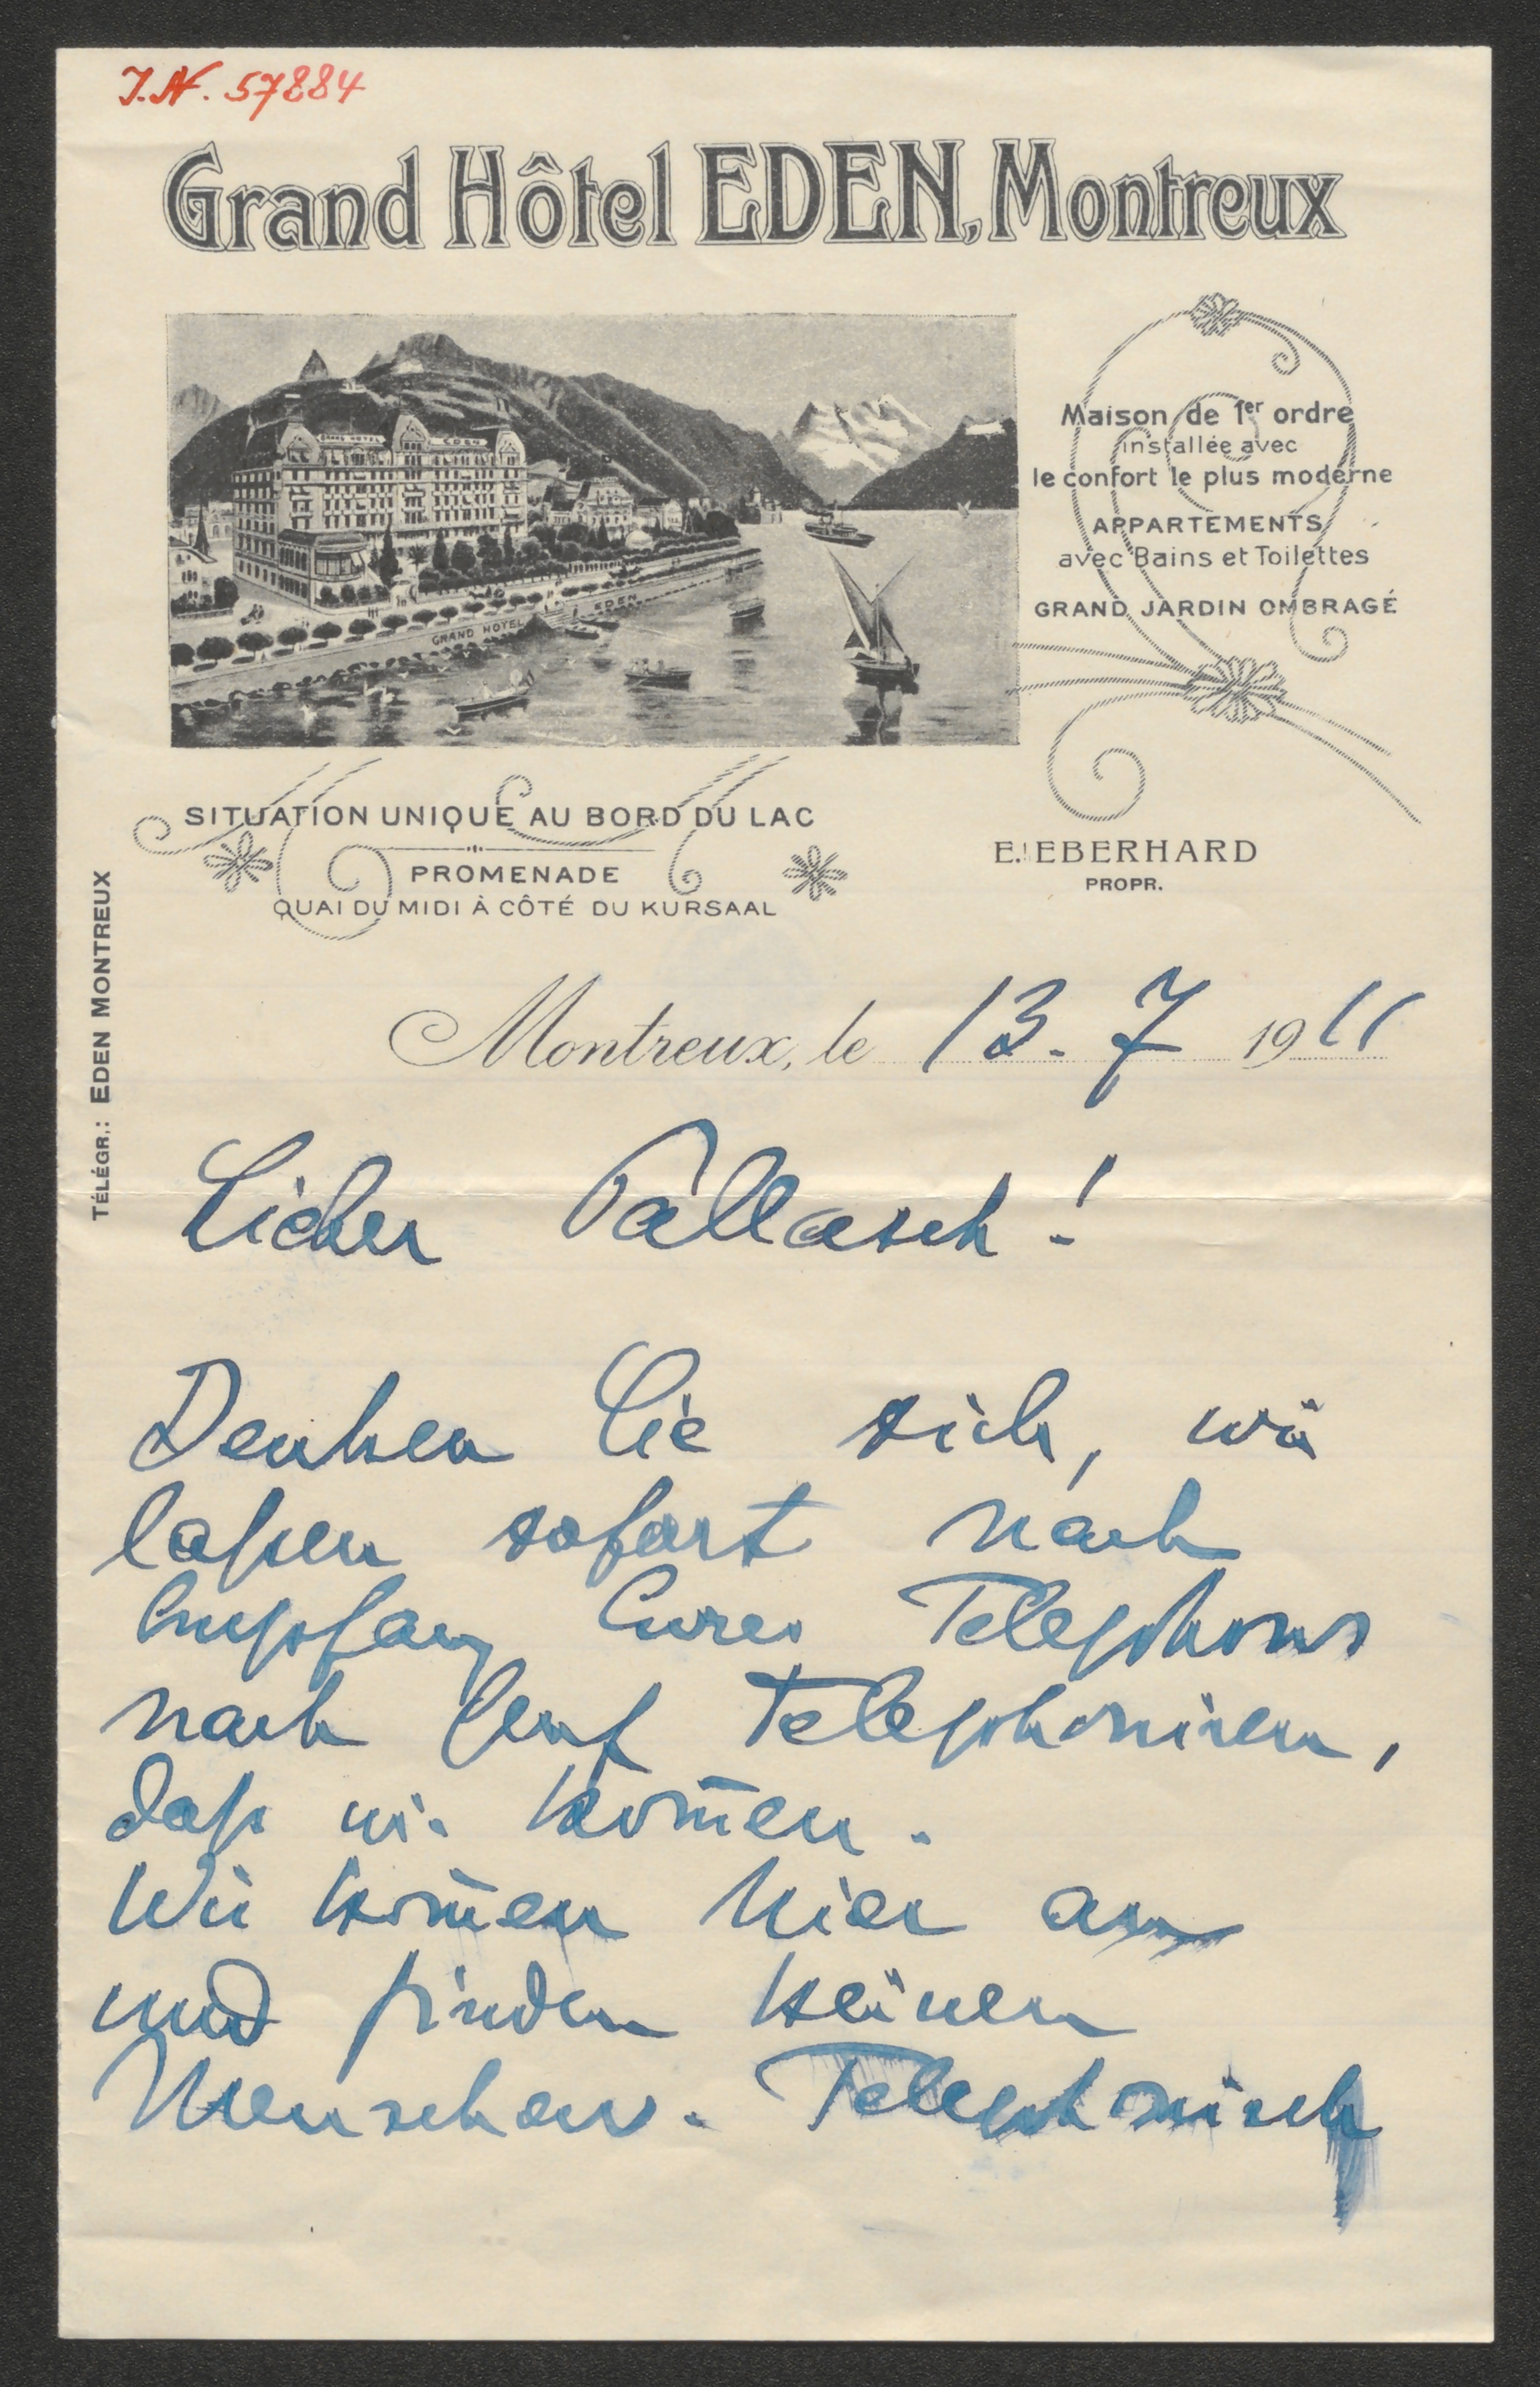 J.N. 57884
Grand Hôtel EDEN, Montreux
GRAND HOTEL EDEN
GRAND HOTEL EDEN
Maison de 1er ordre
installée avec
le confort le plus moderne
APPARTEMENTS
avec Bains et Toilettes
GRAND JARDIN OMBRAGÉ
SITUATION UNIQUE AU BORD DU LAC
PROMENADE
QUAI DU MIDI À CÔTÉ DU KURSAAL
E. EBERHARD
PROPR.
TÉLÉGR.: EDEN MONTREUX
Montreux, le 13. 7 1911
Lieber Pallasch!
Denken Sie sich, wir
laßen sofort nach
Empfang Eures Telephons
nach Genf telephoniren,
daß wir kom̄en.
Wir kom̄en hier an
und finden keinen
Menschen. Telephonisch